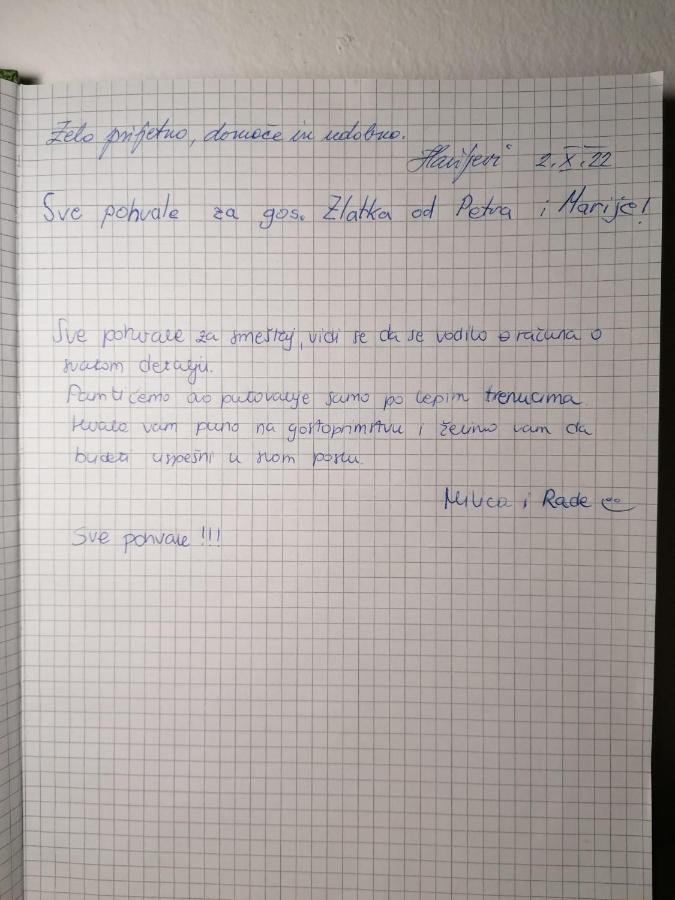 Zelo prijetno, domače in udobno.
2.X.22
Sve pohvale za gos. Zlatka od Petra i Marije!
Sve pohvale za smeštaj, vidi se da se vodilo računa o
svakom detalju.
Pamtićemo ovo putovanje samo po lepim trenucima.
Hvala vam puno na gostoprimstvu i želimo vam da
budete uspešni u svom poslu.
Milica i Rade
Sve pohvale !!!